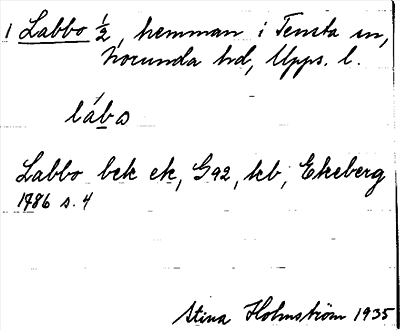 1 Labbo ½, hemman i Tensta sn,
Norunda hd, Upps. l.
lábo
Labbo bek ek, G92, kb, Ekeberg
1786 s. 4
Stina Holmström 1935